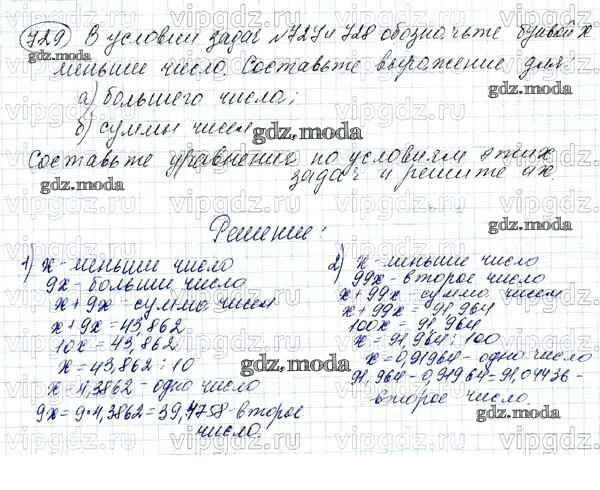 729) В условии задач №727 и 728 обозначьте буквой х
меньшее число. Составьте выражение для:
а) большего числа;
б) суммы чисел
Составьте уравнение по условиям этих
задач и решите их.
Решение:
1) х - меньшее число
9х - больши число
х + 9х - сумма чисел
х + 9х = 43,862
10х = 43,862
х = 43,862 : 10
х = 4,3862 - одно число
9х = 9·4,3862 = 39,4758 - второе
число
2) х - меньше число
99х - второе число
х + 99х - сумма чисел
х + 99х = 91,964
100х = 91,964
х = 91,964 : 100
х = 0,91964 - одно число
91,964 - 0,91964 = 91,04436 -
второе число.
gdz.moda
vipgdz.ru